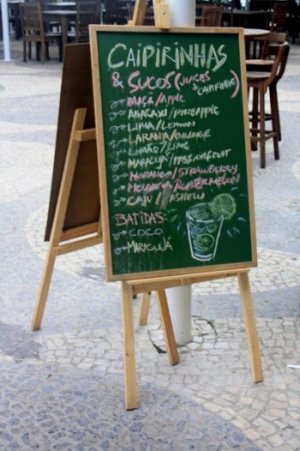 CAIPIRINHAS
& SUCOS (JUICES
& CAIPIRINHAS)
MAÇÃ/APPLE
ABACAXI/PINEAPPLE
LIMA/LEMON
LARANJA/ORANGE
LIMÃO/LIME
MARACUJÁ/PASSIONFRUIT
MORANGO/STRAWBERRY
MELANCIA/WATERMELON
CAJU/CASHEW
BATIDAS:
COCO
MARACUJÁ